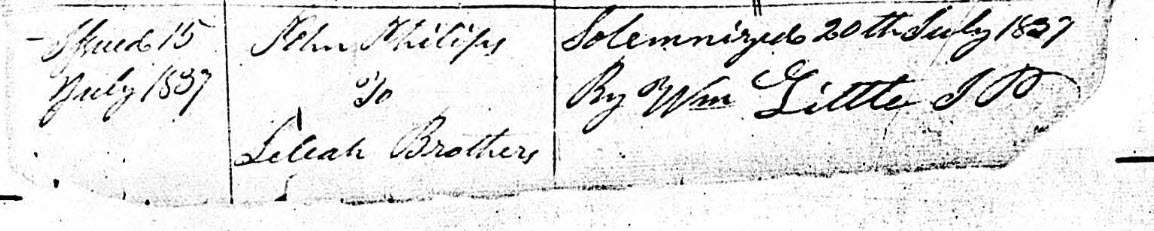 Issued 15
July 1837
John Philips
To
Leleah Brothers
Solemnized 20th July 1837
By Wm Little JP